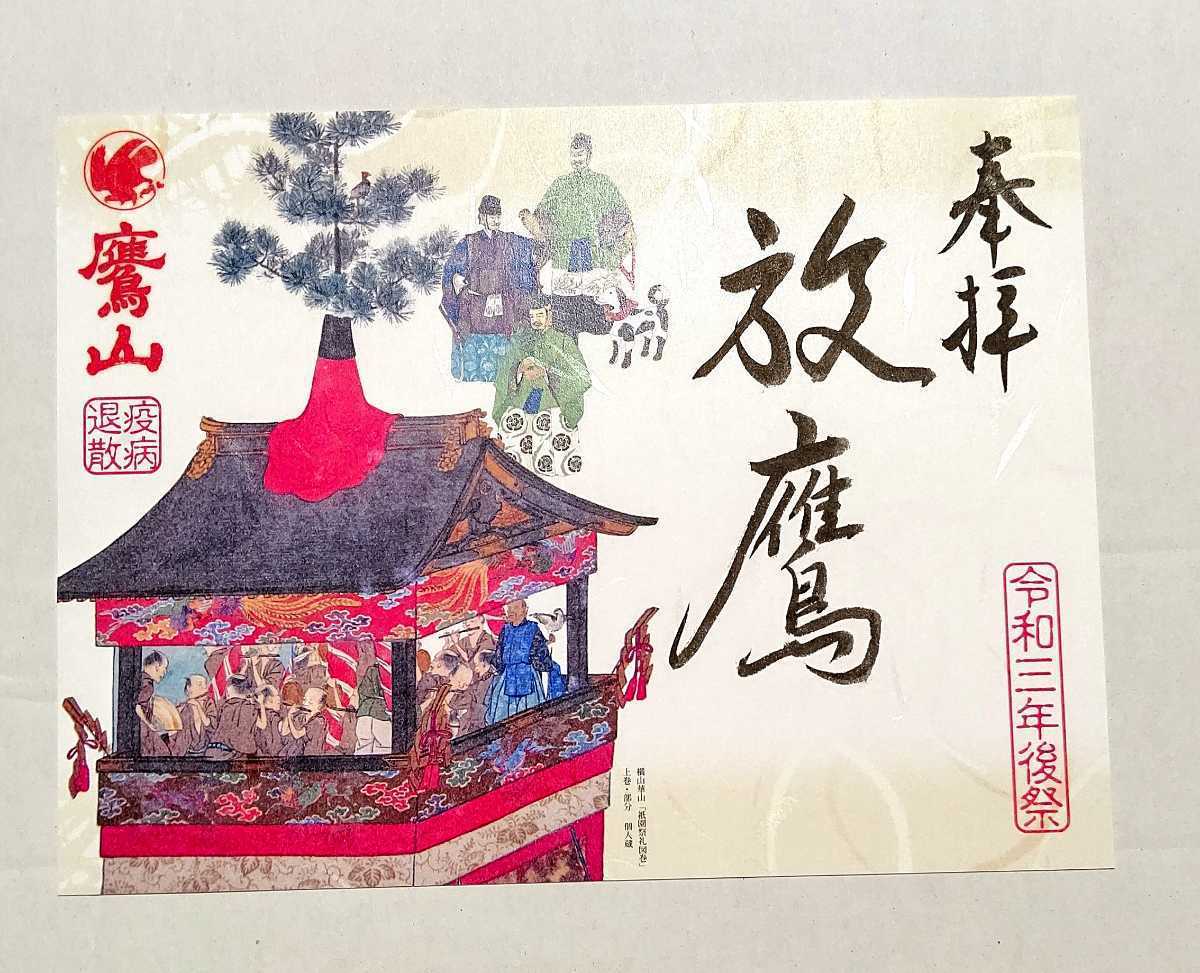 奉拝
放鷹
令和三年後祭
横山華山「祇園祭礼図巻」
上巻・部分　個人蔵
鷹山
疫病
退散